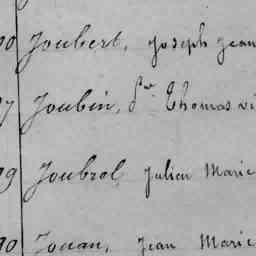 Joubert, Joseph Jean
Joubin, Pre Thomas
Joubrel Julien Marie
Jouan, Jean Marie